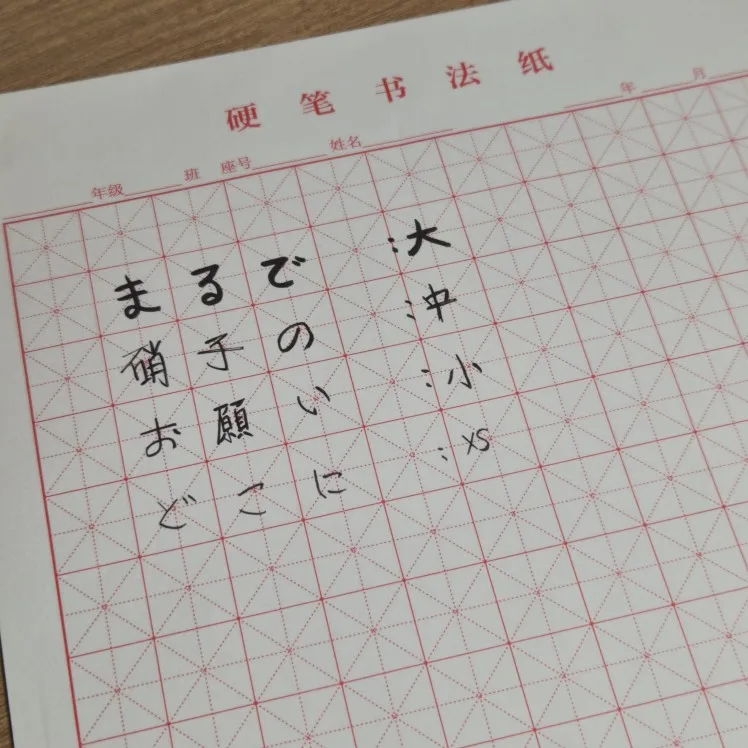 硬笔书法纸
年级 班 座号 姓名 年 月
まるで :大
硝子の :中
お願い :小
どこに :XS